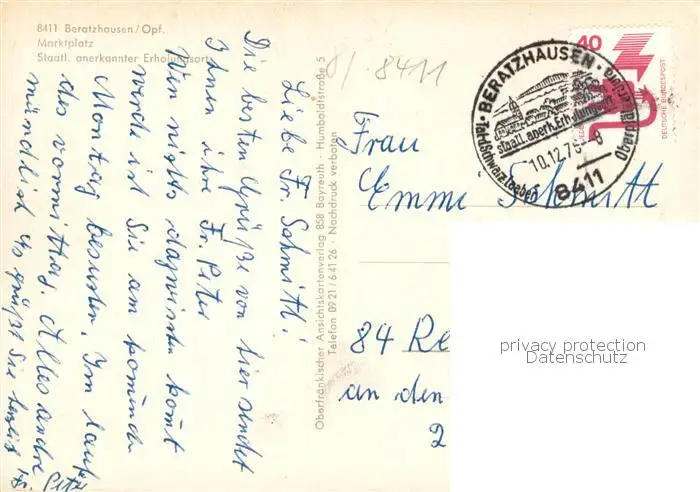 8411 Beratzhausen/Opf.
Marktplatz
Staatl. anerkannter Erholungsort
Liebe Fr. Schmitt!
Die besten Grüße von hier sendet
Ihnen ihre Fr. Peter
Wen nichts dazwischen komt
werde ich Sie am komende
Montag besuchen. Im lauf
des vormittag. Alles andre
mündlich es grüßt Sie
Peter
Oberfränkischer Ansichtskartenverlag 858 Bayreuth · Humboldtstraße 5
Telefon 0921/64126 · Nachdruck verboten
8411
BERATZHAUSEN
staatl. anerk. Erholungsort
10.12.75
8411
40
DEUTSCHE BUNDESPOST
Frau
Emmi Schmitt
84 Re
an den
2
privacy protection
Datenschutz